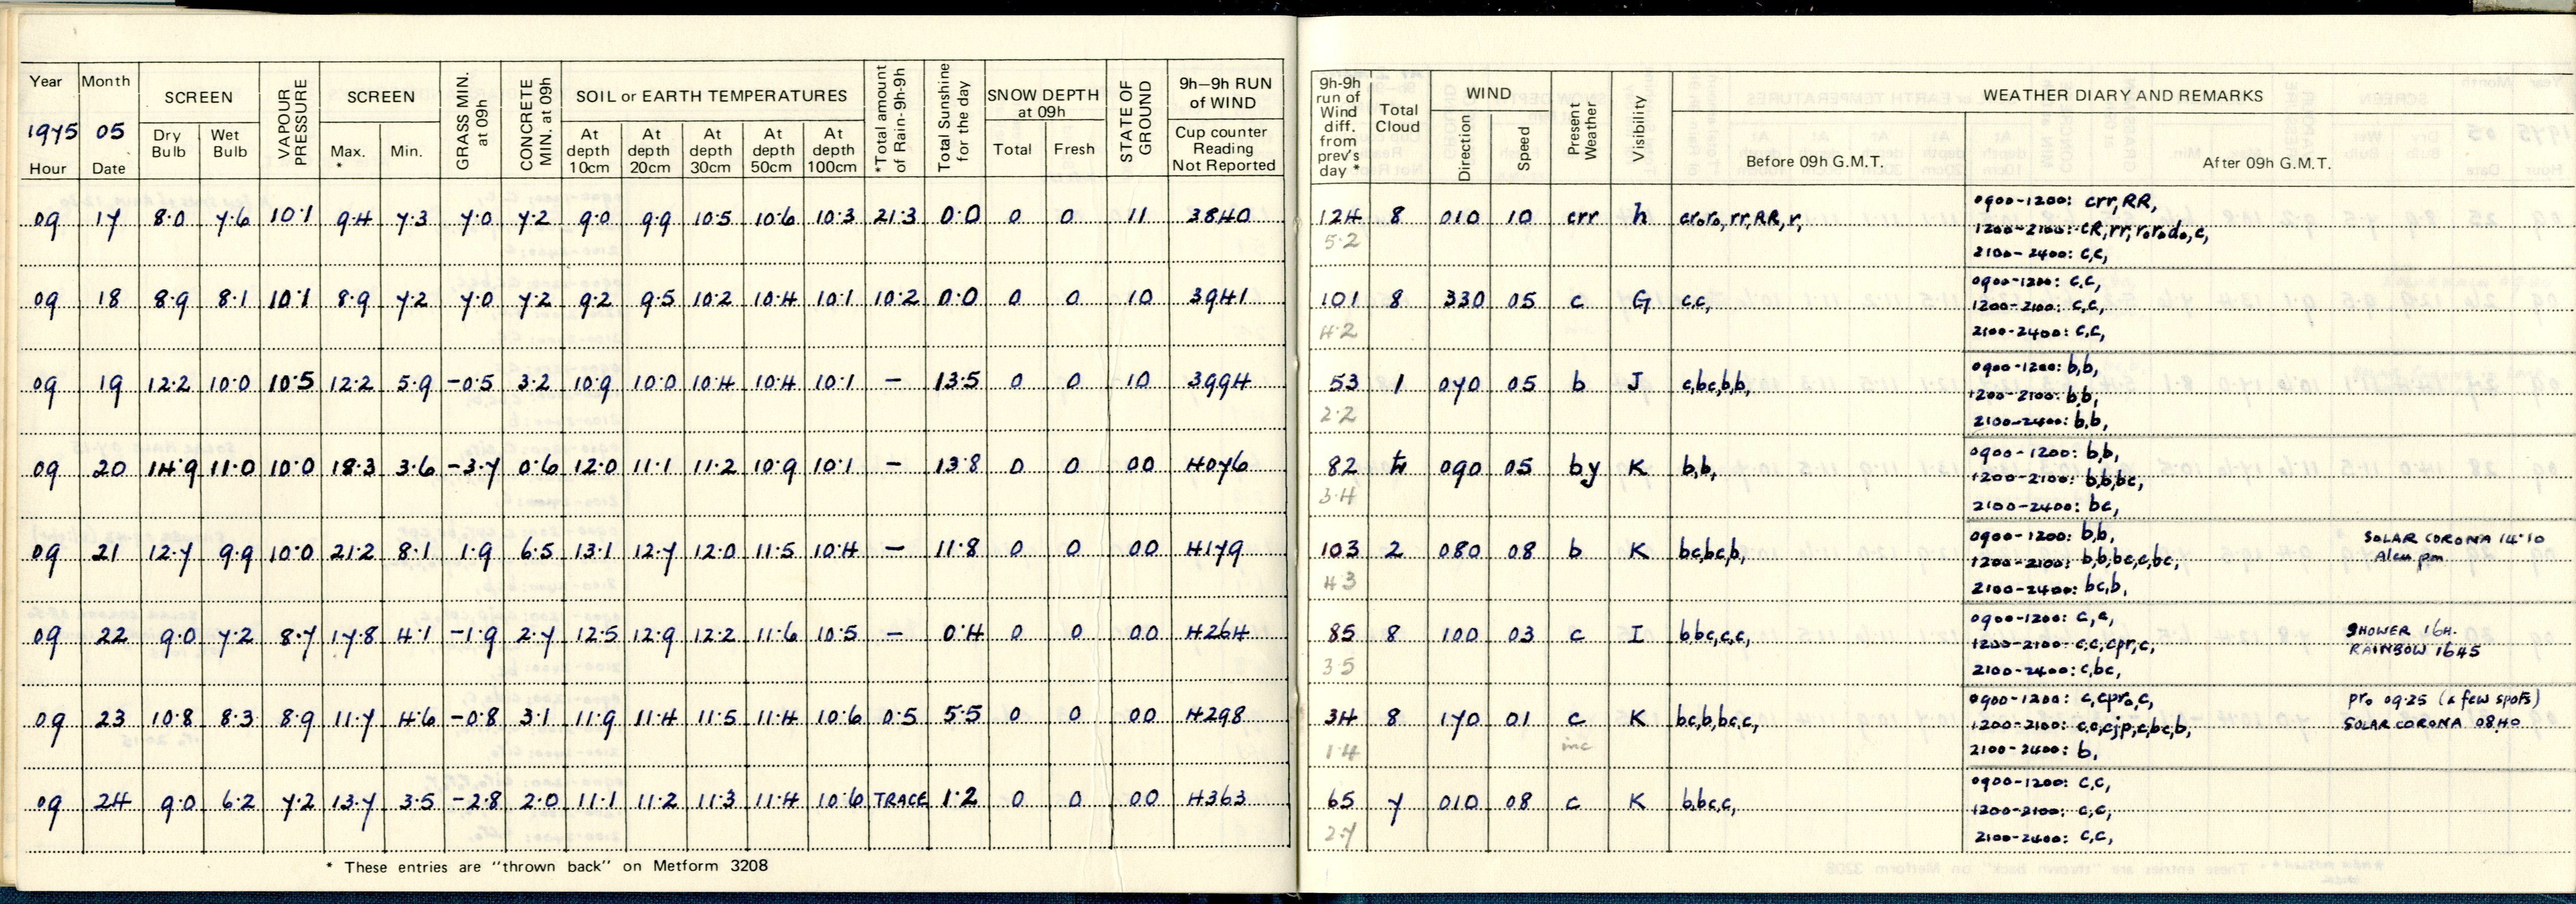 Year Month SCREEN VAPOUR PRESSURE SCREEN GRASS MIN. at 09h CONCRETE MIN. at 09h SOIL or EARTH TEMPERATURES *Total amount of Rain-9h-9h Total Sunshine for the day SNOW DEPTH at 09h STATE OF GROUND 9h–9h RUN of WIND
1975 05 Dry Bulb Wet Bulb Max. * Min. At depth 10cm At depth 20cm At depth 30cm At depth 50cm At depth 100cm Total Fresh Cup counter Reading Not Reported
Hour Date
09 17 8·0 7·6 10·1 9·4 7·3 7·0 7·2 9·0 9·9 10·5 10·6 10·3 21·3 0·0 0 0 11 3840
09 18 8·9 8·1 10·1 8·9 7·2 7·0 7·2 9·2 9·5 10·2 10·4 10·1 10·2 0·0 0 0 10 3941
09 19 12·2 10·0 10·5 12·2 5·9 -0·5 3·2 10·9 10·0 10·4 10·4 10·1 — 13·5 0 0 10 3994
09 20 14·9 11·0 10·0 18·3 3·6 -3·7 0·6 12·0 11·1 11·2 10·9 10·1 — 13·8 0 0 00 4076
09 21 12·7 9·9 10·0 21·2 8·1 1·9 6·5 13·1 12·7 12·0 11·5 10·4 — 11·8 0 0 00 4179
09 22 9·0 7·2 8·7 17·8 4·1 -1·9 2·7 12·5 12·9 12·2 11·6 10·5 — 0·4 0 0 00 4264
09 23 10·8 8·3 8·9 11·7 4·6 -0·8 3·1 11·9 11·4 11·5 11·4 10·6 0·5 5·5 0 0 00 4298
09 24 9·0 6·2 7·2 13·7 3·5 -2·8 2·0 11·1 11·2 11·3 11·4 10·6 TRACE 1·2 0 0 00 4363
* These entries are "thrown back" on Metform 3208
9h-9h run of Wind diff. from prev's day * Total Cloud WIND Present Weather Visibility WEATHER DIARY AND REMARKS
Direction Speed Before 09h G.M.T. After 09h G.M.T.
0900-1200: crr,RR,
124 8 010 10 crr h cr₀r₀,rr,RR,r,
5·2 1200-2100: cR,rr,r₀r₀d₀,c,
2100-2400: c,c,
0900-1200: c,c,
101 8 330 05 c G c,c,
1200-2100: c,c,
4·2 2100-2400: c,c,
0900-1200: b,b,
53 1 070 05 b J c,bc,b,b,
1200-2100: b,b,
2·2 2100-2400: b,b,
0900-1200: b,b,
82 090 05 by K b,b,
1200-2100: b,b,bc,
3·4 2100-2400: bc,
0900-1200: b,b, SOLAR CORONA 14·10
103 2 080 08 b K bc,bc,b,
1200-2100: b,b,bc,c,bc, Alcu pm
4·3 2100-2400: bc,b,
0900-1200: c,c,
85 8 100 03 c I b,bc,c,c, SHOWER 16H.
1200-2100: c,c,cpr,c, RAINBOW 1645
3·5 2100-2400: c,bc,
0900-1200: c,cpr₀,c, pr₀ 09·25 (a few spots)
34 8 170 01 c K bc,b,bc,c,
1200-2100: c,c,cjp,c,bc,b, SOLAR CORONA 08.40
1·4 inc 2100-2400: b,
0900-1200: c,c,
65 7 010 08 c K b,bc,c,
1200-2100: c,c,
2·7 2100-2400: c,c,